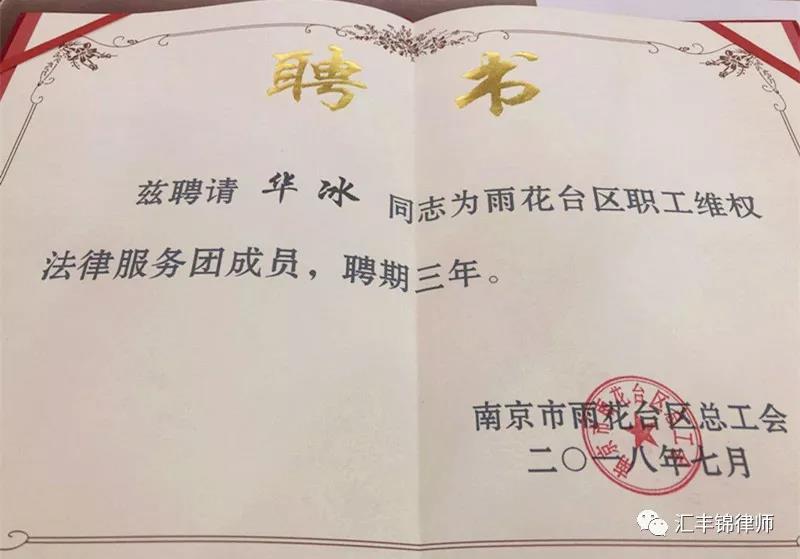 聘书
兹聘请 华冰 同志为雨花台区职工维权
法律服务团成员，聘期三年。
南京市雨花台区总工会
二〇一八年七月
南京市雨花台区总工会
汇丰锦律师